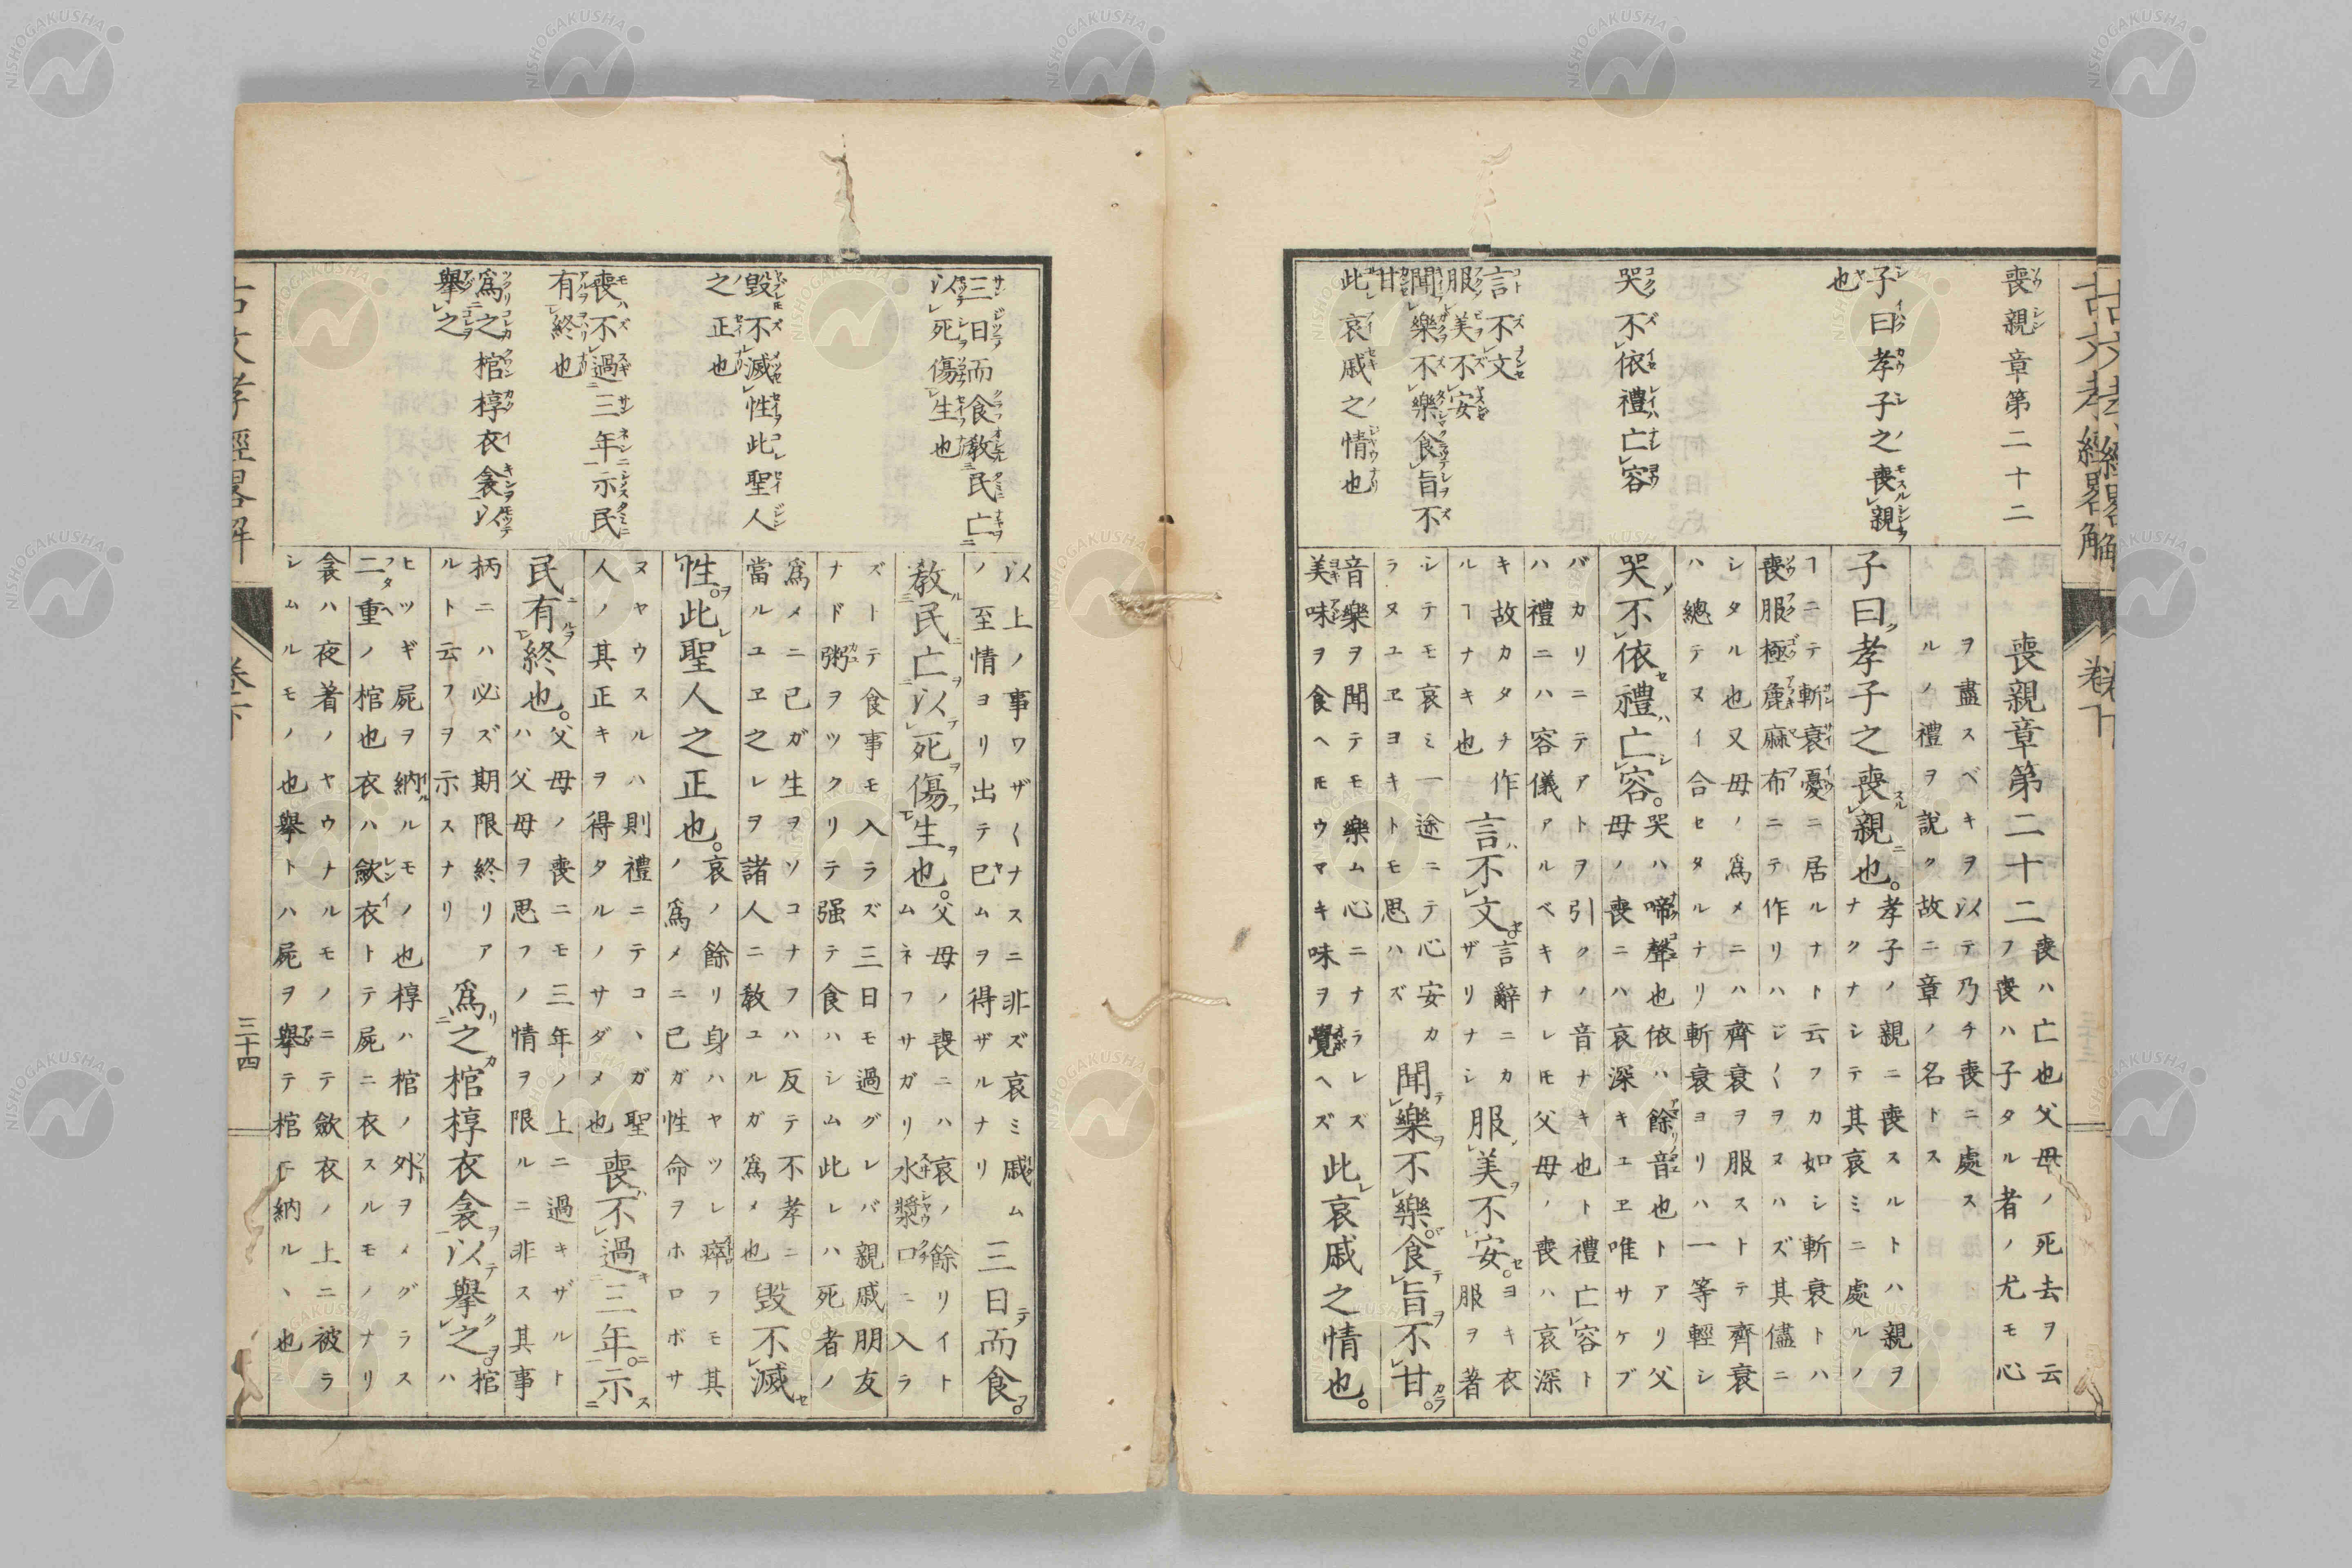 古文孝經畧解
卷下
喪親章第二十二
子曰孝子之喪親
也
哭不依禮亡容
言不文
服美不安
聞樂不樂食旨不
甘
此哀戚之情也
喪親章第二十二
喪ハ亡也父母ノ死去ヲ云
フ喪ハ子タル者ノ尤モ心
ヲ盡スベキヲ以テ乃チ喪ニ處ス
ルノ禮ヲ說ク故ニ章ノ名トス
子曰孝子之喪親也。
孝子ノ親ニ喪スルトハ親ヲ
ナクナシテ其哀ミニ處ルノ
ヿニテ斬衰憂ニ居ルナト云フカ如シ斬衰トハ
喪服極麁麻布ニテ作リハジ〱ヲヌハズ其儘ニ
シタル也又母ノ爲メニハ齊衰ヲ服ストテ齊衰
ハ總テヌイ合セタルナリ斬衰ヨリハ一等輕シ
哭不依禮亡容。
哭ハ啼聲也依ハ餘音也トアリ父
母ノ喪ニハ哀深キユヱ唯サケブ
バカリニテアトヲ引クノ音ナキ也ト禮亡容ト
ハ禮ニハ容儀アルベキナレ𪜈父母ノ喪ハ哀深
キ故カタチ作
ルヿナキ也
言不文
言辭ニカ
ザリナシ
服美不安。
ヨキ衣
服ヲ著
シテモ哀ミ一途ニテ心安カ
ラヌユヱヨキトモ思ハズ
聞樂不樂。食旨不甘。
音樂ヲ聞テモ樂ム心ニナラレズ
美味ヲ食ヘ𪜈ウマキ味ヲ覺ヘズ
此哀戚之情也。
三日而食教民亡
以死傷生也
毀不滅性此聖人
之正也
喪不過三年示民
有終也
爲之棺椁衣衾以
擧之
以上ノ事ワザ〱ナスニ非ズ哀ミ戚ム
ノ至情ヨリ出テ已ムヲ得ザルナリ
三日而食。
教民亡以死傷生也。
父母ノ喪ニハ哀ノ餘リイト
ムネフサガリ水漿口ニ入ラ
ズ一テ食事モ入ラズ三日モ過グレバ親戚朋友
ナド粥ヲツクリテ强テ食ハシム此レハ死者ノ
爲メニ已ガ生ヲソコナフハ反テ不孝ニ
當ルユヱ之レヲ諸人ニ教ユルガ爲メ也
毀不滅
性。此聖人之正也。
哀ノ餘リ身ハヤツレ瘁フモ其
ノ爲メニ已ガ性命ヲホロボサ
ヌヤウスルハ則禮ニテコヽガ聖
人ノ其正キヲ得タルノサダメ也
喪不過三年。示
民有終也。
父母ノ喪ニモ三年ノ上ニ過キザルト
ハ父母ヲ思フノ情ヲ限ルニ非ス其事
柄ニハ必ズ期限終リア
ルト云フヲ示スナリ
爲之棺椁衣衾以擧之。
棺ハ
ヒツギ屍ヲ納ルモノ也椁ハ棺ノ外ヲメグラス
二重ノ棺也衣ハ斂衣トテ屍ニ衣スルモノナリ
衾ハ夜着ノヤウナルモノニテ斂衣ノ上ニ被ラ
シムルモノ也擧トハ屍ヲ擧テ棺ニ納ルヽ也
古文孝經畧解
卷下
三十四